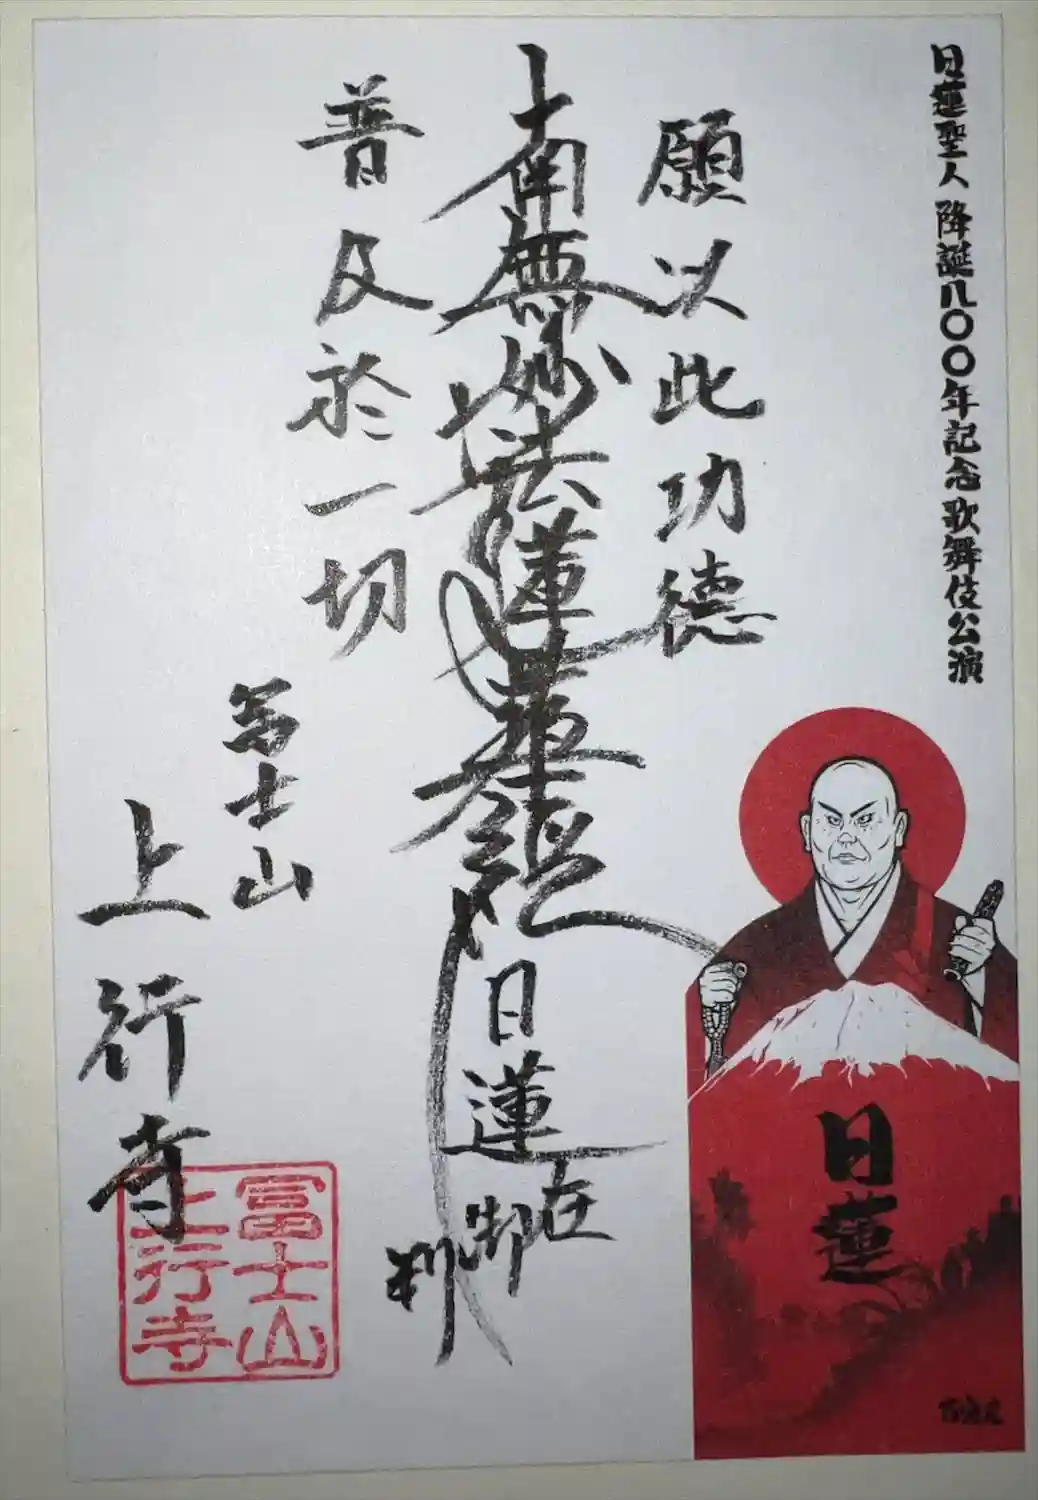 日蓮聖人降誕八〇〇年記念歌舞伎公演
願以此功徳
南無妙法蓮華経
日蓮
在御判
普及於一切
富士山
上行寺
富士山
上行寺
日蓮